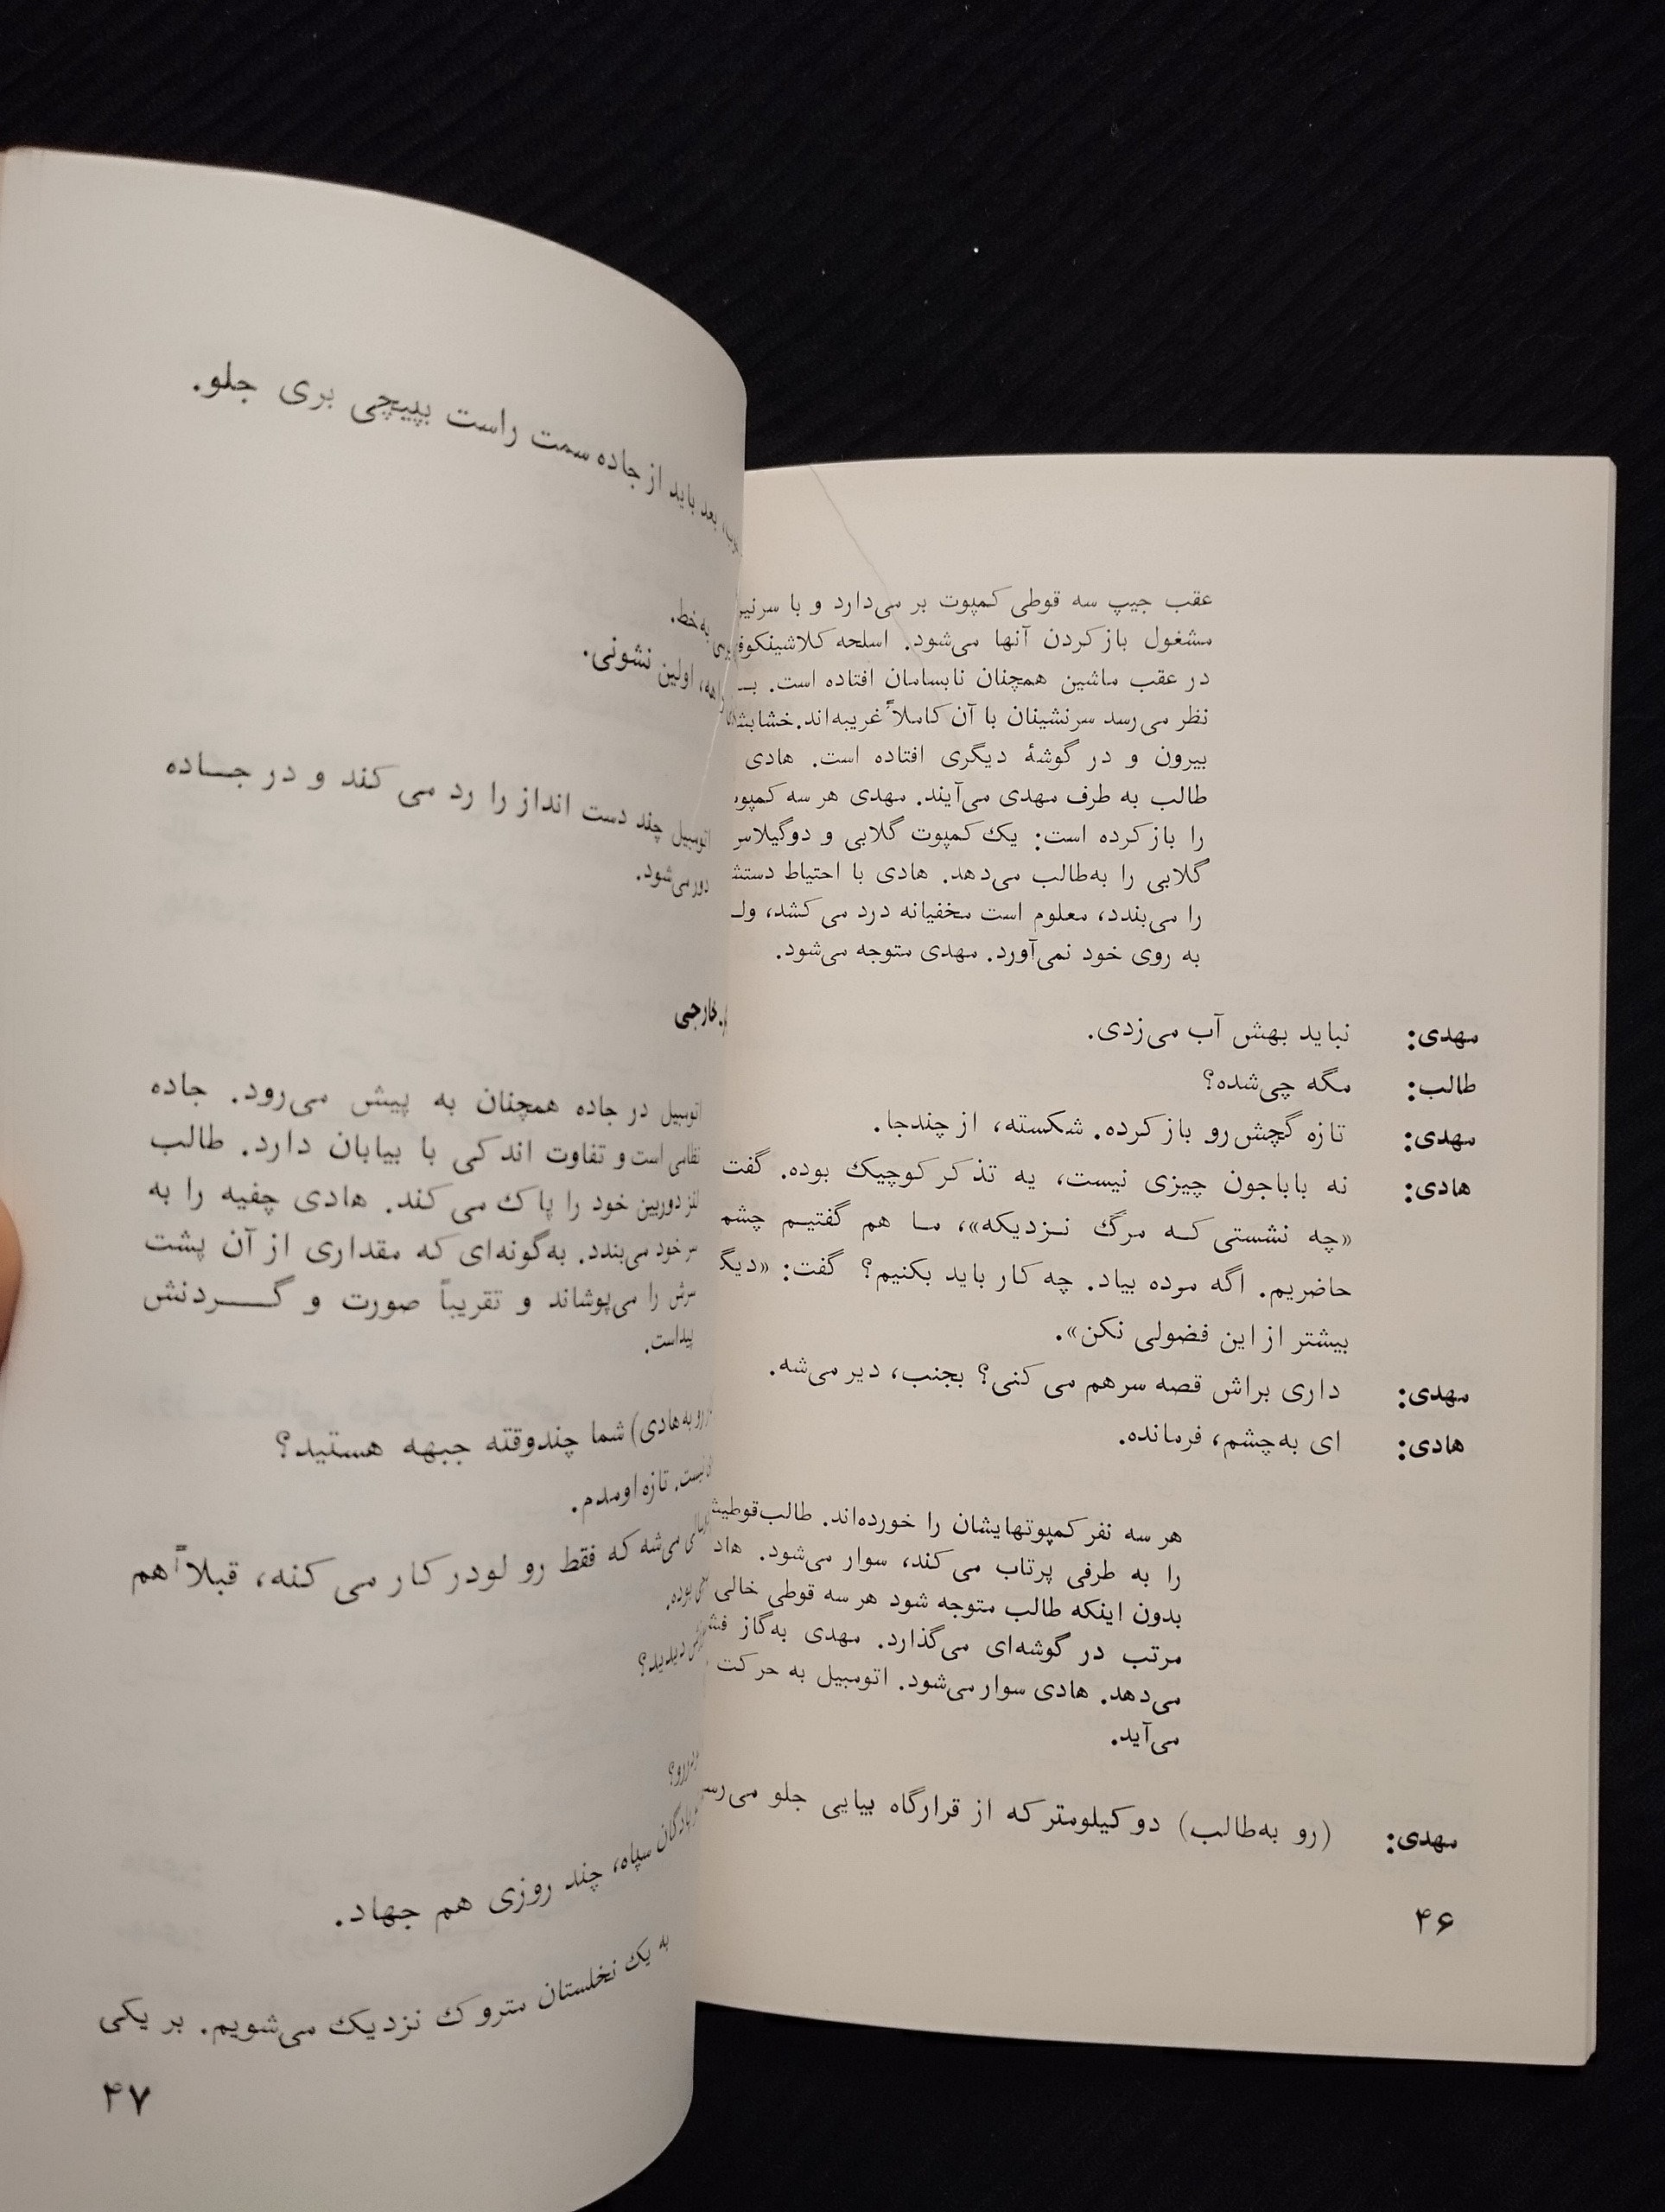 عقب جیپ سه قوطی کمپوت بر می‌دارد و با
مشغول باز کردن آنها می‌شود. اسلحه
در عقب ماشین همچنان نابسامان افتاده است.
نظر می‌رسد سرنشینان با آن کاملاً غریبه‌اند.
بیرون و در گوشهٔ دیگری افتاده است. هادی
طالب به طرف مهدی می‌آیند. مهدی هر سه
را باز کرده است: یک کمپوت گلابی و
گلابی را به‌طالب می‌دهد. هادی با احتیاط
را می‌بندد، معلوم است مخفیانه درد می کشد،
به روی خود نمی‌آورد. مهدی متوجه می‌شود.
مهدی: نباید بهش آب می‌زدی.
طالب: مگه چی‌شده؟
مهدی: تازه گچش‌رو باز کرده. شکسته، از چندجا.
هادی: نه باباجون چیزی نیست، یه تذکر کوچیک بوده. گفت
«چه نشستی کـه مرگ نـزدیکه»، مـا هم گفتیـم چشم
حاضریم. اگه موده بیاد. چه کار باید بکنیم؟ گفت:
بیشتر از این فضولی نکن».
مهدی: داری براش قصه سرهم می کنی؟ بجنب، دیر می‌شه.
هادی: ای به‌چشم، فرمانده.
هر سه نفر کمپوتهایشان را خورده‌اند.
را به طرفی پرتاب می کند، سوار می‌شود.
بدون اینکه طالب متوجه شود هر سه قوطی خالی
مرتب در گوشه‌ای می‌گذارد. مهدی به‌گاز
می‌دهد. هادی سوار می‌شود. اتومبیل به حرکت
می‌آید.
مهدی: (رو به‌طالب) دو کیلومتر که از قرارگاه بیایی جلو
۴۶
بعد باید از جاده سمت راست بپیچی بری جلو.
به‌خط.
اولین نشونی.
اتومبیل چند دست انداز را رد می کند و در جـــاده
دورمی‌شود.
خارجی
اتومبیل در جاده همچنان به پیش می‌رود. جاده
نظامی است و تفاوت اندکی با بیابان دارد. طالب
لنز دوربین خود را پاک می کند. هادی چفیه را به
سر خود می‌بندد. به‌گونه‌ای که مقداری از آن پشت
سرش را می‌پوشاند و تقریباً صورت و گـــــردنش
پیداست.
رو به هادی) شما چندوقته جبهه هستید؟
نیست. تازه اومدم.
می‌شه که فقط رو لودر کار می کنه، قبلاً هم
بوده.
دیدید؟
سپاه، چند روزی هم جهاد.
به یک نخلستان متروک نزدیک می‌شویم. بر یکی
۴۷